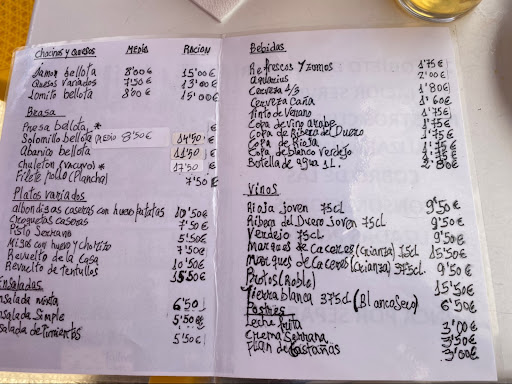 Chacinas y Quesos MEDIA RACION
Jamon bellota 8'00€ 15'00€
Quesos variados 7'50€ 13'00€
Lomito bellota 8'00€ 15'00€
Brasa
Presa bellota *
Solomillo bellota MEDIO 8'50€ 14'50€
Abanico bellota 11'50€
Chuleton (vacuno) * 17'50€
Filete pollo (Plancha) 7'50€
Platos variados
albondigas caseras con huevo patatas 10'50€
Croquetas caseras 7'50€
Pisto Serrano 5'50€
Migas con huevo y chorizo 7'50€
Revuelto de la Casa 10'50€
Revuelto de tentullos 15'50€
Ensaladas
nsalada mixta 6'50€
nsalada Simple 5'50€
salada de Pimientos 5'50€
Bebidas
Refrescos y zumos 1'75€
aquarius 2'00€
Cerveza 1/3 1'80€
Cerveza caña 1'60€
Tinto de Verano 1'75€
Copa de vino arabe 1'75€
Copa de Ribera del Duero 1'75€
Copa de Rioja 1'75€
Copa de blanco verdejo 1'75€
Botella de agua 1L. 2'80€
Vinos
Rioja joven 75cl 9'50€
Ribera del Duero joven 75cl 9'50€
Verdejo 75cl. 9'50€
Marques de Caceres (Crianza) 75cl 15'50€
Marques de Caceres (Crianza) 375cl. 9'50€
Protos (Roble) 15'50€
Tierra blanca 375cl (Blanco Seco) 6'50€
Postres
Leche frita 3'00€
Crema Serrana 3'50€
Flan de Castañas 3'00€